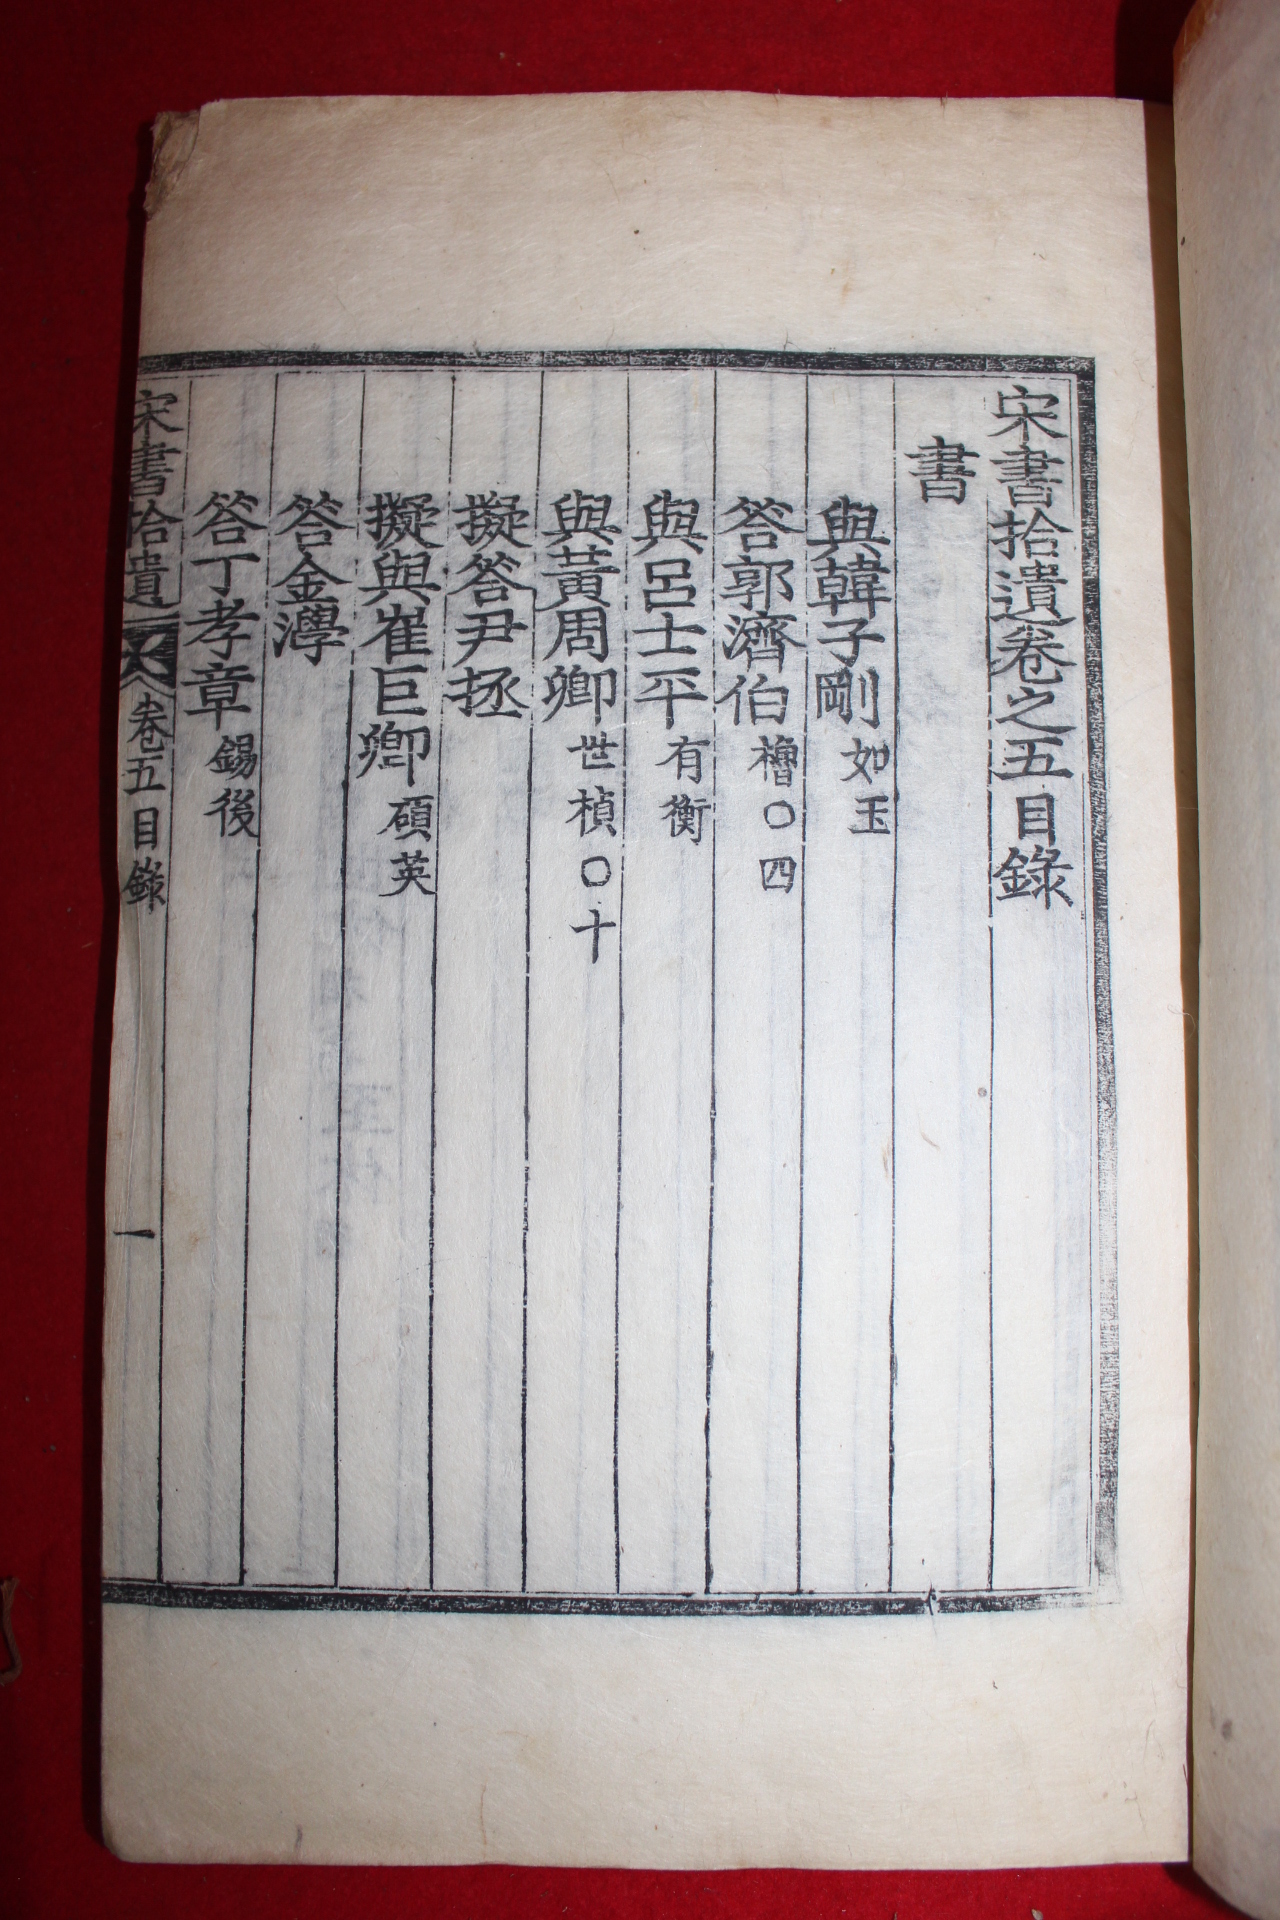 宋書拾遺卷之五目錄
書
與韓子剛 如玉
答郭濟伯 櫓○四
與呂士平 有衡
與黃周卿 世楨○十
擬答尹拯
擬與崔巨卿 碩英
答金㶅
答丁孝章 錫後
宋書拾遺 卷五目錄 一